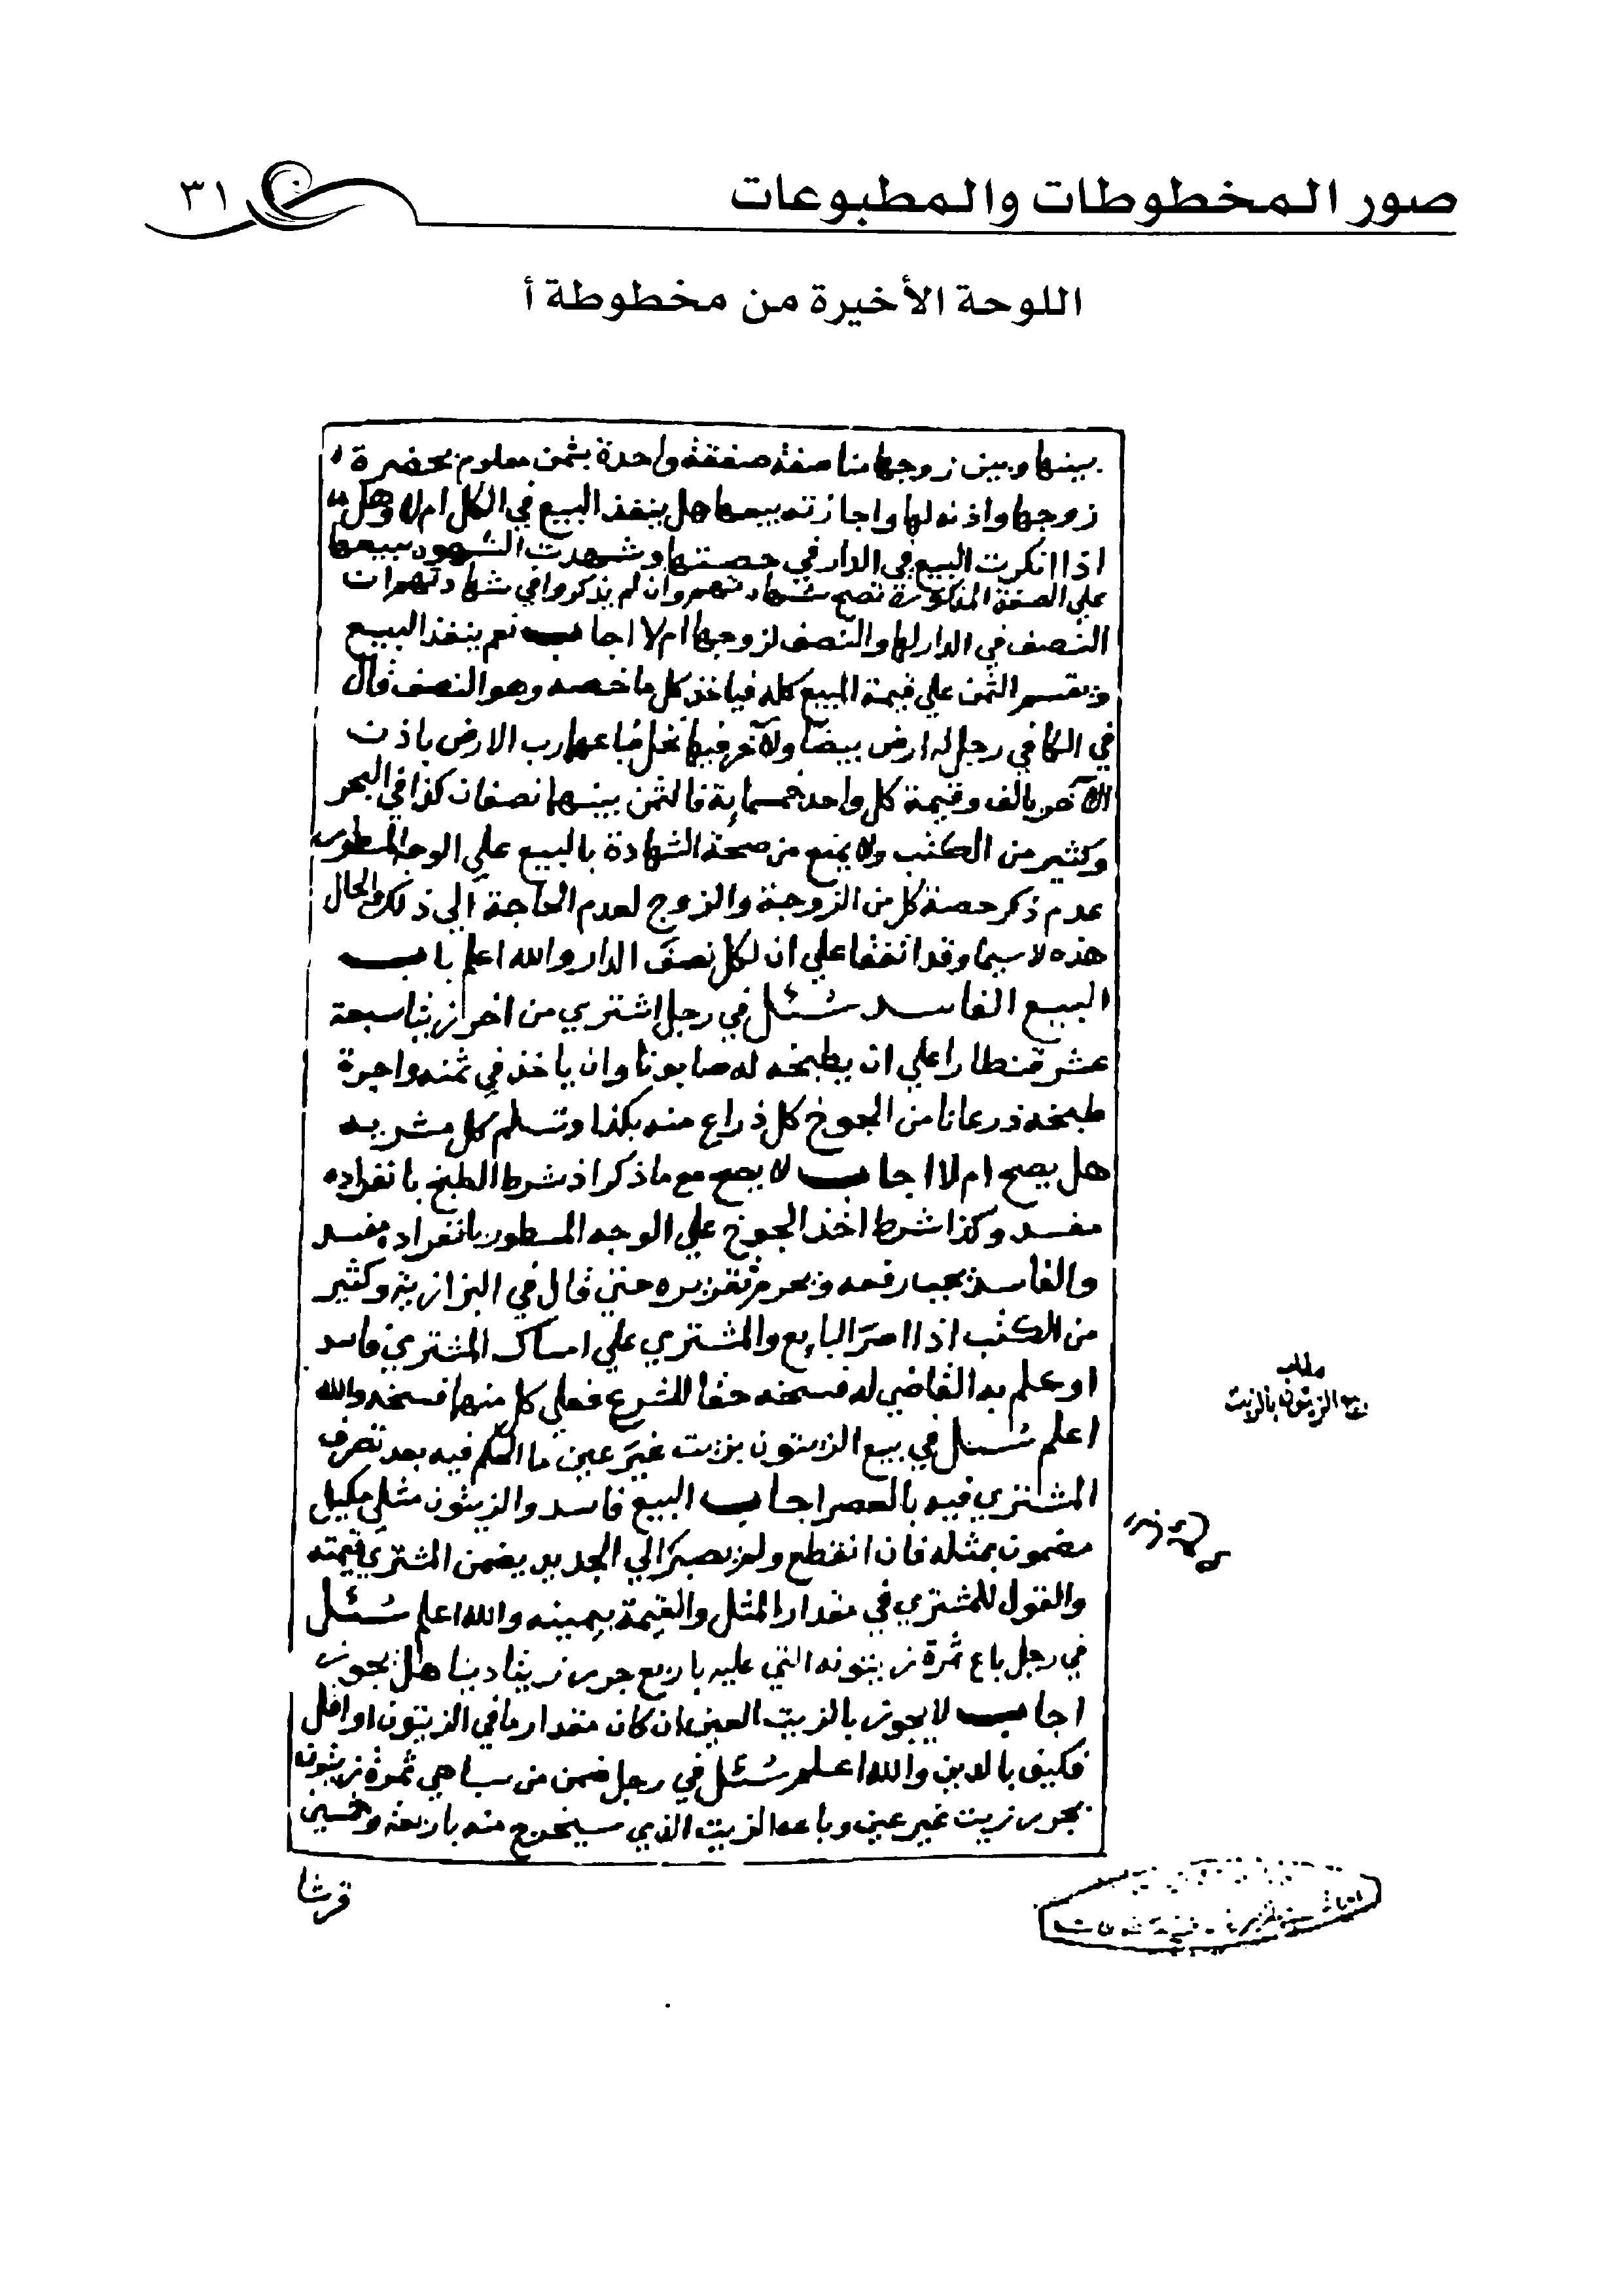 صور المخطوطات والمطبوعات
٣١
اللوحة الأخيرة من مخطوطة أ
بينها وبين زوجها مناصفة صفقة واحدة بثمن معلوم بحضرة
زوجها واذنه لها واجازته بيعها هل ينفذ البيع في الكل ام لا وهل
اذا انكرت البيع في الدار في حصتها وشهدت الشهود ببيعها
علي الصفة المذكورة تصح شهادتهم وان لم يذكروا في شهادتهم ان
النصف في الدار لها والنصف لزوجها ام لا اجاب نعم ينفذ البيع
ويقسم الثمن علي قيمة المبيع كله فياخذ كل ما خصه وهو النصف قال
في الكافي رجل له ارض بيضا ولآخر فيها نخل فباعها رب الارض باذن
الآخر بالف وقيمة كل واحد خمسماية فالثمن بينهما نصفان كذا في البحر
وكثير من الكتب ولا يمنع من صحة الشهادة بالبيع علي الوجه المسطور
عدم ذكر حصة كل من الزوجة والزوج لعدم الحاجة الي ذلك والحال
هذه لا سيما وقد اتفقا علي ان لكل نصف الدار والله اعلم باب
البيع الفاسد سئل في رجل اشتري من اخر زيتا سبعة
عشر قنطارا علي ان يطبخه له صابونا وان ياخذ في ثمنه واجرة
طبخه ذرعانا من الجوخ كل ذراع منه بكذا وتسلم كل مشريه
هل يصح ام لا اجاب لا يصح مع ما ذكر اذ شرط الطبخ بانفراده
مفسد وكذا شرط اخذ الجوخ علي الوجه المسطور بانفراده مفسد
والفاسد يجب رفعه ويحرم تقريره حتي قال في البزازية وكثير
من الكتب اذا اصر البايع والمشتري علي امساك المشتري فاسد
او علم به القاضي له فسخه حقا للشرع فعلي كل منهما فسخه والله
اعلم سئل في بيع الزيتون بزيت غير عين ما الحكم فيه بعد تصرف
المشتري فيه بالعصر اجاب البيع فاسد والزيتون مثلي مكيل
مضمون بمثله فان انقطع ولم يصبر الي الجديد يضمن المشتري قيمته
والقول للمشتري في مقدار المثل والقيمة بيمينه والله اعلم سئل
في رجل باع ثمرة زيتونه التي عليه باربع جرر زيتا دينا هل يجوز
اجاب لا يجوز بالزيت العين ان كان مقدار ما في الزيتون او اقل
فكيف بالدين والله اعلم سئل في رجل ضمن من سباهي ثمرة زيتون
بجرر زيت غير عين وباعه الزيت الذي سيخرج منه باربعة وخمسين
قرشا
مطلب
بيع الزيتون بالزيت